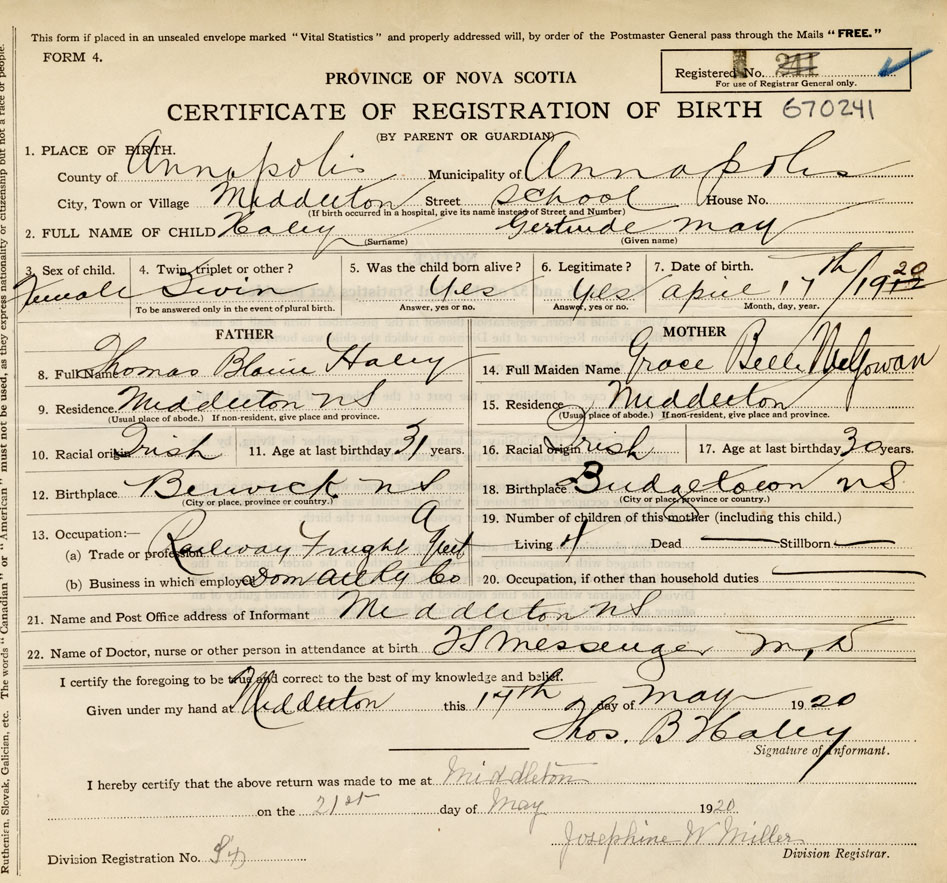 This form if placed in an unsealed envelope marked "Vital Statistics" and properly addressed will, by order of the Postmaster General pass through the Mails "FREE."
FORM 4.
Registered No. 241
For use of Registrar General only.
PROVINCE OF NOVA SCOTIA
CERTIFICATE OF REGISTRATION OF BIRTH 670241
(BY PARENT OR GUARDIAN)
1. PLACE OF BIRTH.
County of Annapolis Municipality of Annapolis
City, Town or Village Middleton Street School House No.
(If birth occurred in a hospital, give its name instead of Street and Number)
2. FULL NAME OF CHILD Haley Gertrude May
(Surname) (Given name)
3. Sex of child. 4. Twin, triplet or other? 5. Was the child born alive? 6. Legitimate? 7. Date of birth.
Female Twin Yes Yes April 17th/1920
To be answered only in the event of plural birth. Answer, yes or no. Answer, yes or no. Month, day, year.
FATHER
8. Full Name Thomas Blaine Haley
9. Residence Middleton NS
(Usual place of abode.) If non-resident, give place and province.
10. Racial origin Irish 11. Age at last birthday 31 years.
12. Birthplace Berwick NS
(City or place, province or country.)
13. Occupation:—
(a) Trade or profession Railway Freight Agent
(b) Business in which employed Dom Atl Ry Co
MOTHER
14. Full Maiden Name Grace Belle McGowan
15. Residence Middleton
(Usual place of abode.) If non-resident, give place and province.
16. Racial origin Irish 17. Age at last birthday 30 years.
18. Birthplace Bridgetown NS
(City or place, province or country.)
19. Number of children of this mother (including this child.)
Living 4 Dead — Stillborn —
20. Occupation, if other than household duties —
21. Name and Post Office address of Informant Middleton NS
22. Name of Doctor, nurse or other person in attendance at birth Messenger M.D
I certify the foregoing to be true and correct to the best of my knowledge and belief.
Given under my hand at Middleton this 17th day of May 1920
Thos. B Haley
Signature of Informant.
I hereby certify that the above return was made to me at Middleton
on the 21st day of May 1920
Josephine W Miller
Division Registration No.
Division Registrar.
Ruthenian, Slovak, Galician, etc. The words "Canadian" or "American" must not be used, as they express nationality or citizenship but not a race or people.